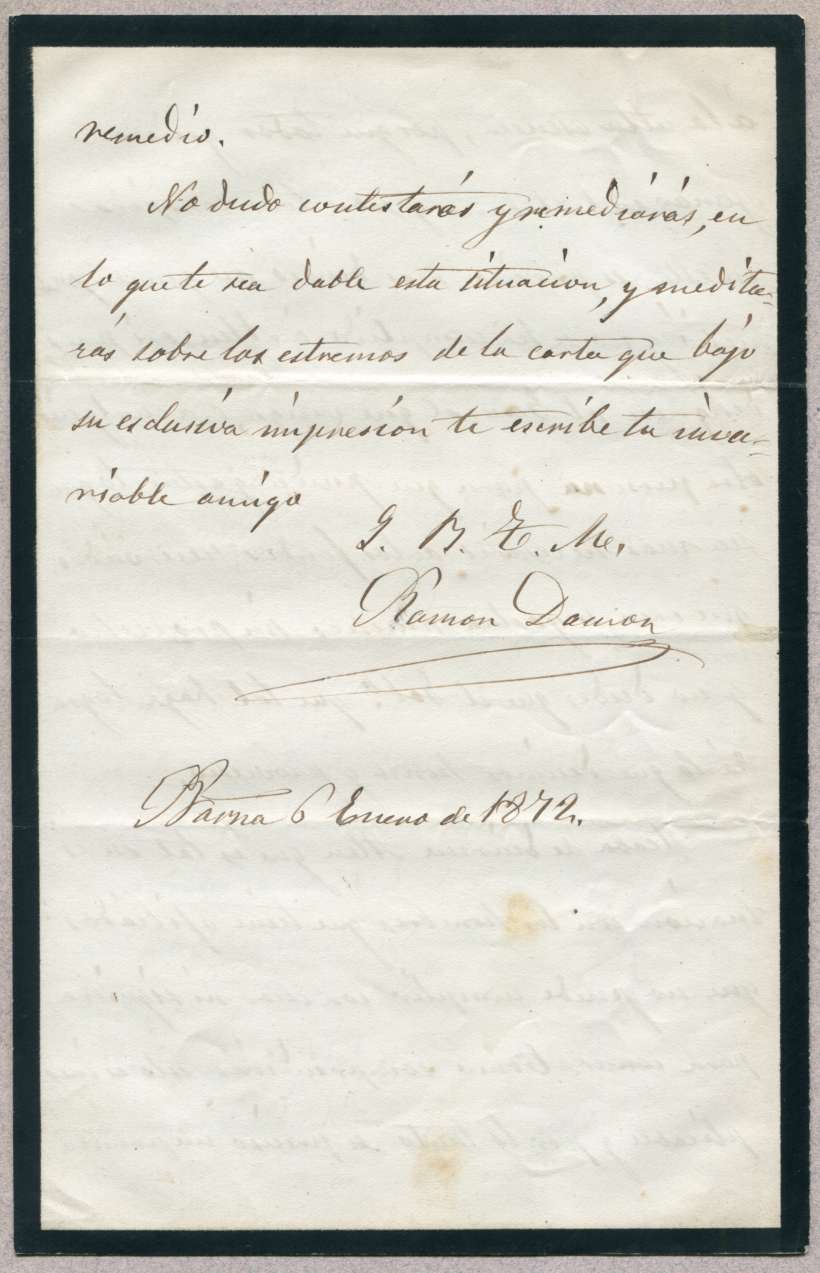 remedio.
No dudo contestarás y remediárás, en
lo que te sea dable esta situacion, y medita-
rás sobre los estremos de la carta que bájo
su esclusiva impresion te escribe tu inva-
riable amigo
Q. B. T. M.
Ramon
Barna 6 Enero de 1872.